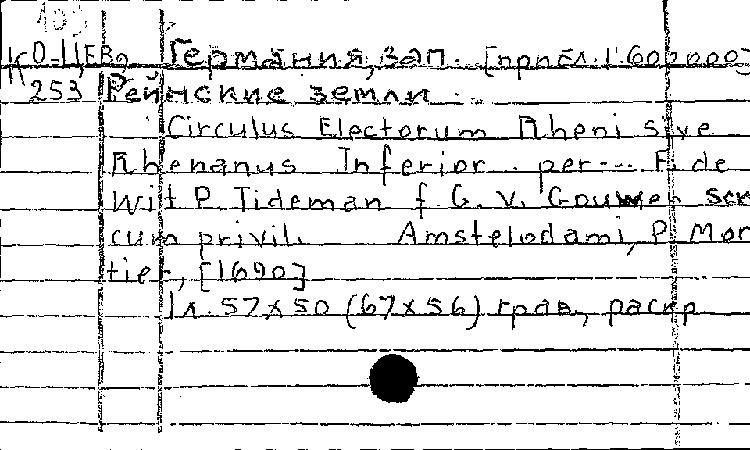 103
КО-11,ЕВ2 Германия, зап. [прибл. 1:600 000]
К 253 Рейнские земли.
Circulus Electorum Rheni sive
Rhenanus Inferior.. per... F. de
Wit P. Tideman f. G. V. Gouwen scr
cum privil. Amstelodami, P. Mor
tier, [1690]
1 л. 57x50 (67x56) грав., раскр